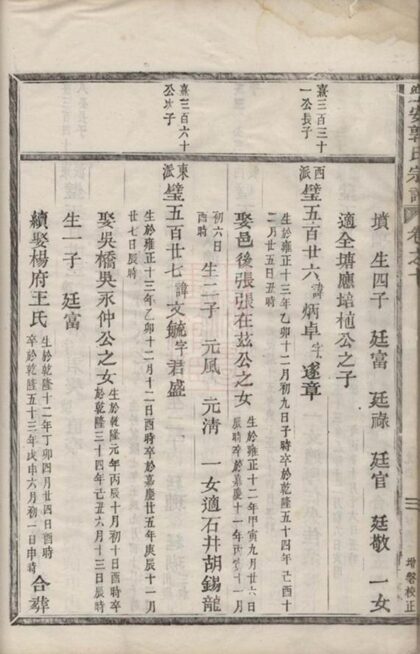 安郭氏宗譜 卷之十
三 增磐校正
墳 生四子 廷富 廷祿 廷官 廷敬 一女
適全塘應培植公之子
熹三百三十一公長子
西派 璧五百廿六 諱 炳卓 字 遂章
生於雍正十三年乙卯十二月初九日子時卒於乾隆五十四年己酉十二月廿五日丑時
娶邑後張張在茲公之女 生於雍正十二年甲寅九月廿六日辰時卒於嘉慶十一年丙寅十一月初六日酉時
生二子 元風 元清 一女適石井胡錫龍
熹三百六十公次子
東派 璧五百廿七 諱 文鏡 字 君盛
生於雍正十三年乙卯十二月十二日酉時卒於嘉慶廿五年庚辰十一月廿七日辰時
娶吳橋吳永仲公之女 生於乾隆元年丙辰十月初十日酉時卒於乾隆三十四年己丑六月十三日辰時
生一子 廷富
續娶楊府王氏 生於乾隆十二年丁卯四月廿四日酉時卒於乾隆五十三年戊申六月初一日申時 合葬